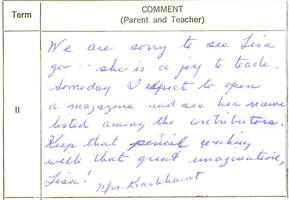 Term
COMMENT
(Parent and Teacher)
We are sorry to see Lisa
go -- she is a joy to teach.
Someday I expect to open
a magazine and see her name
II
listed among the contributors.
Keep that pencil working
with that great imagination,
Lisa!
Mrs.